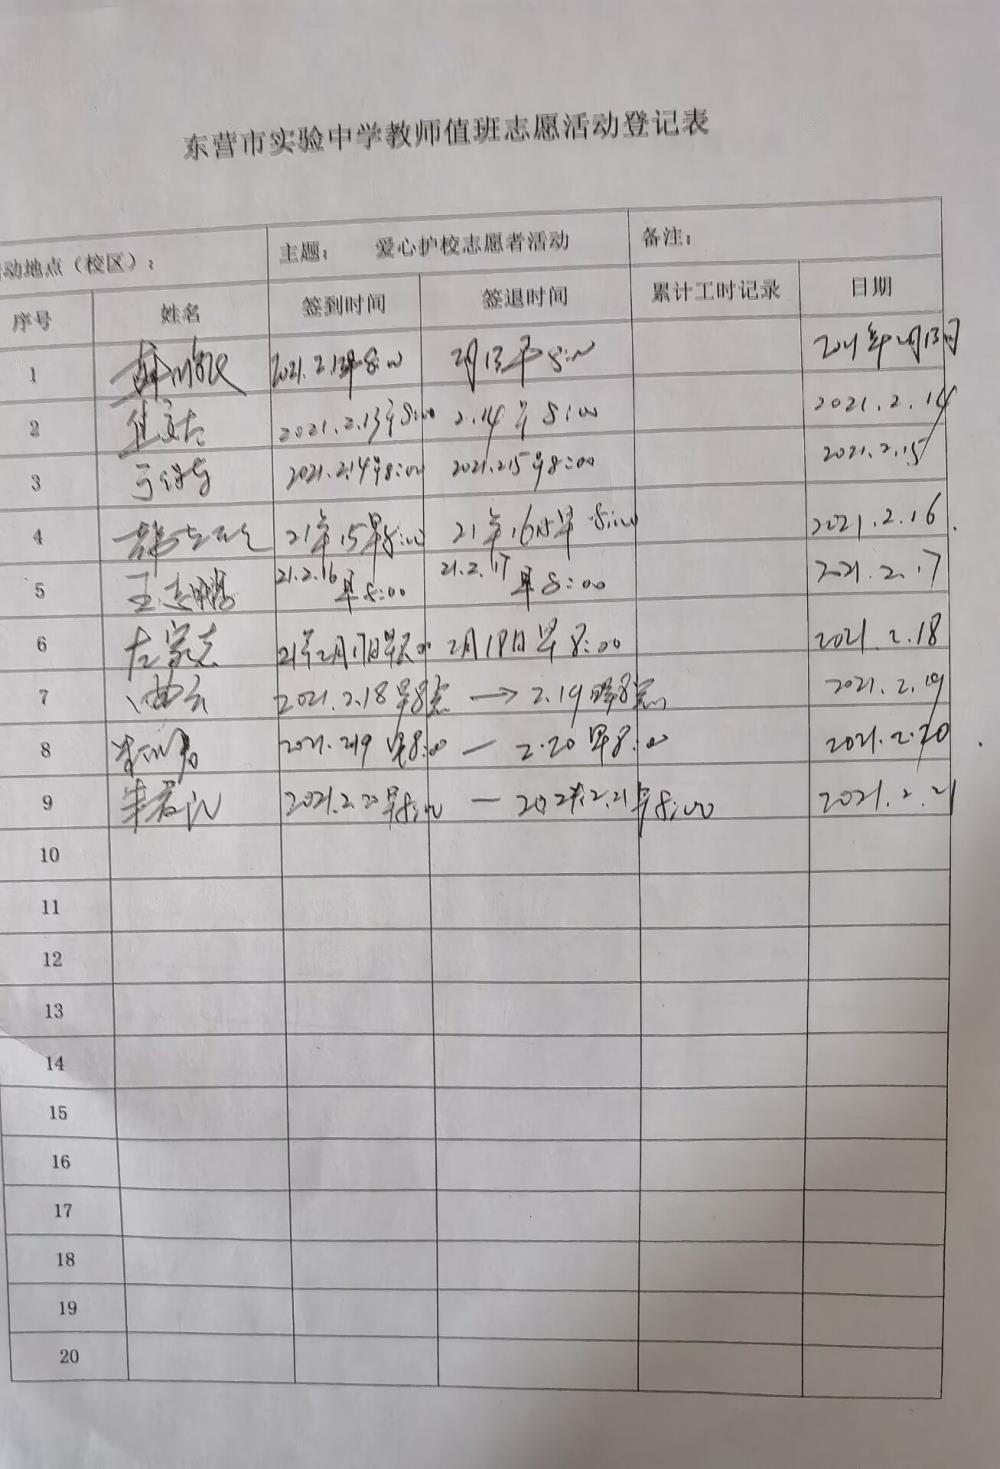 东营市实验中学教师值班志愿活动登记表
动地点（校区）： 主题： 爱心护校志愿者活动 备注：
序号 姓名 签到时间 签退时间 累计工时记录 日期
1 2021.2.12早8:00 2月13早8:00 2021年2月13日
2 2021.2.13早8:00 2.14早8:00 2021.2.14
3 2021.2.14早8:00 2021.2.15早8:00 2021.2.15
4 21年 15早8:00 21年 16 早8:00 2021.2.16
5 王志鹏 21.2.16早8:00 21.2.17早8:00 2021.2.17
6 左家志 21年2月17日早8:00 2月18日早8:00 2021.2.18
7 2021.2.18早8点 → 2.19 8点 2021.2.19
8 2021.2.19 早8:00 — 2.20早8:00 2021.2.20
9 2021.2.20早8:00 — 2021.2.21早8:00 2021.2.21
10
11
12
13
14
15
16
17
18
19
20